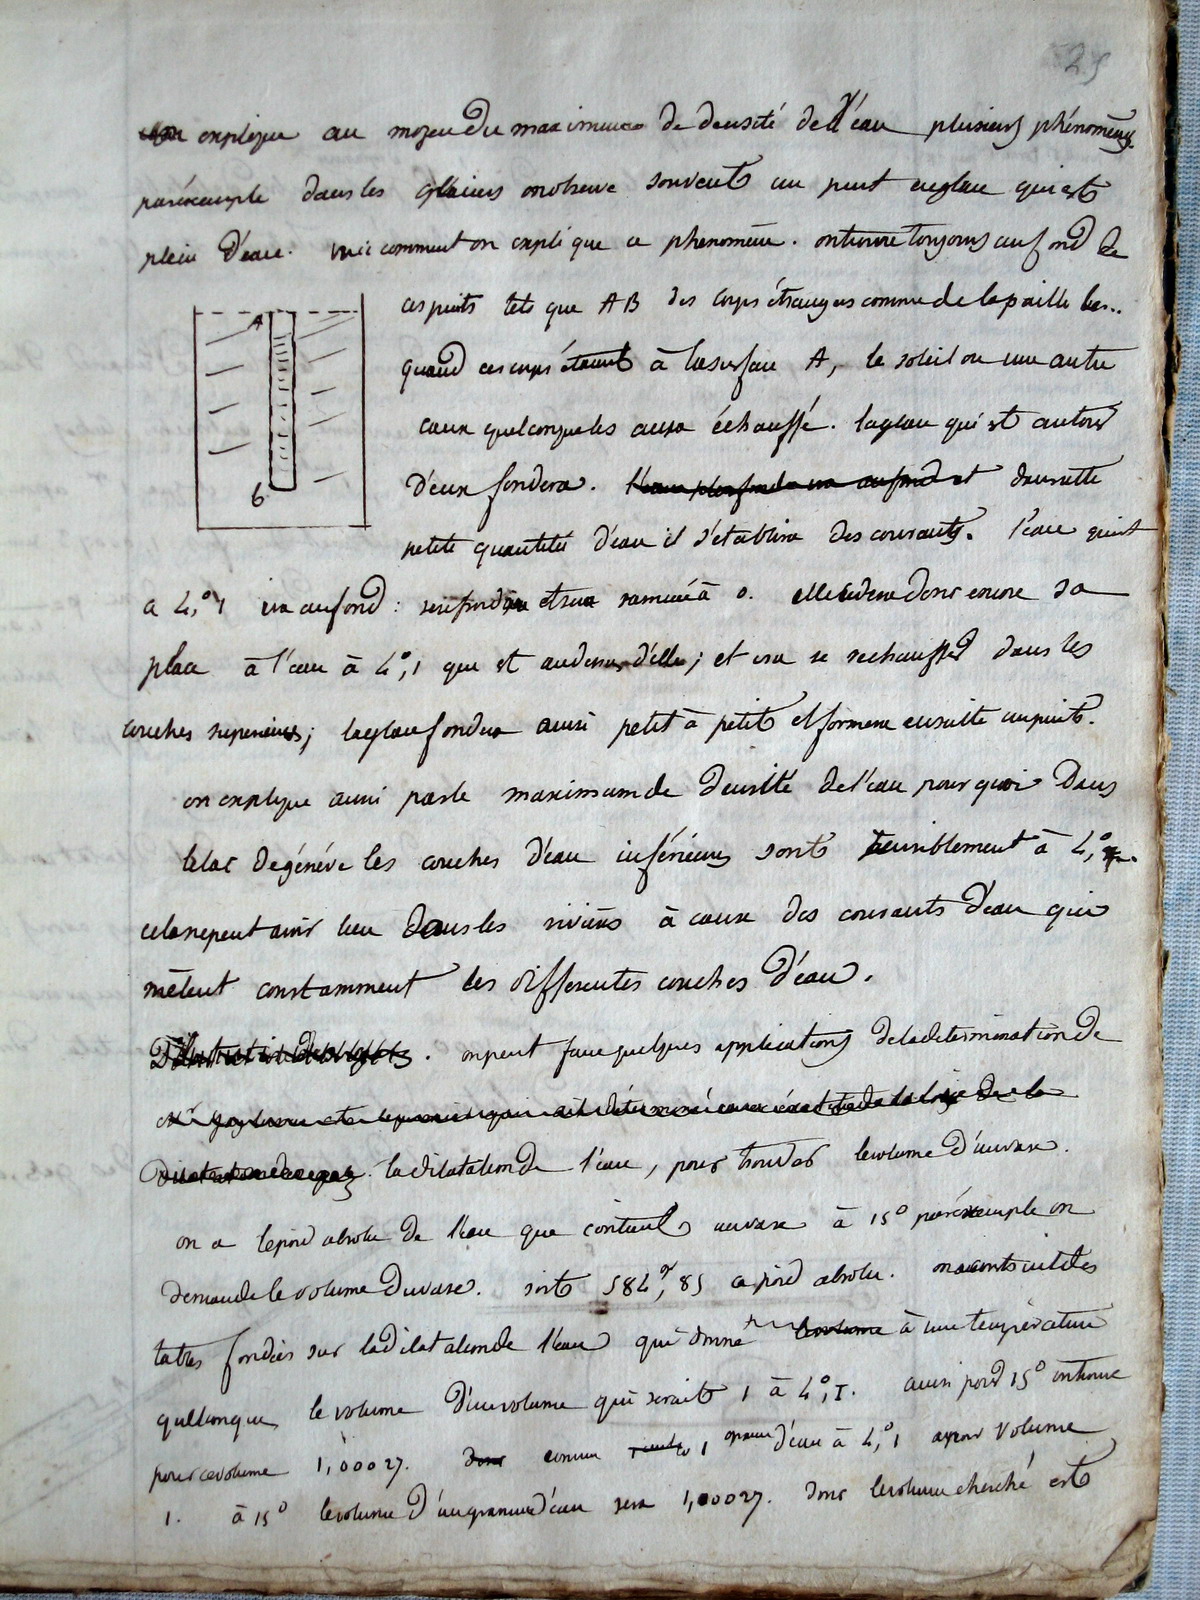 25
on explique au moyen du maximum de densité de l'éau plusieurs phénomènes.
par éxemple dans les glaciers on observe souvent un puit en glace qui est
plein d'eau. voici comment on explique ce phenomène. on trouve toujours au fond de
ces puits tels que AB des corps étrangers comme de la paille &c...
quand ces corps étaient à la surface A, le soleil ou une autre
cause quelconque les aura échauffé. la glace qui est autour
d'eux fondera. l'eau plus froide ira au fond et dans cette
petite quantité d'eau il s'établira des courants. l'eau qui est
a 4,°1 ira au fond : se refroidira et sera ramenée à 0. elle cédera donc encore sa
place à l'eau à 4°,1 qui est au dessus d'elle ; et ira se rechauffer dans les
couches superieures ; la glace fondra ainsi petit à petit et formera ensuite un puits.
A
b
on explique aussi par le maximum de densité de l'eau pourquoi dans
le lac de généve les couches d'eau inférieures sont sensiblement à 4,°
cela ne peut avoir lieu dans les rivières à cause des courants d'eau qui
mêlent constamment les differentes couches d'eau.
Dilatation des gaz. on peut faire quelques applications de la determination de
Mr gay lussac est le premier qui ait déterminé avec éxactitude la loi de la
dilatation des gaz la dilatation de l'eau, pour trouver le volume d'un vase.
on a le poid absolu de l'eau que contient un vase à 15° par éxemple on
demande le volume du vase. soit 584,gr 85 ce poid absolu. on a construit des
tables fondées sur la dilatation de l'eau qui donne le volume à une température
quelconque, le volume d'un volume qui serait 1 à 4°,1. ainsi pour 15° on trouve
pour ce volume 1,00027. donc comme 1 gramme d'eau à 4,°1 a pour volume
1. à 15° le volume d'un gramme d'eau sera 1,00027. donc le volume cherché est